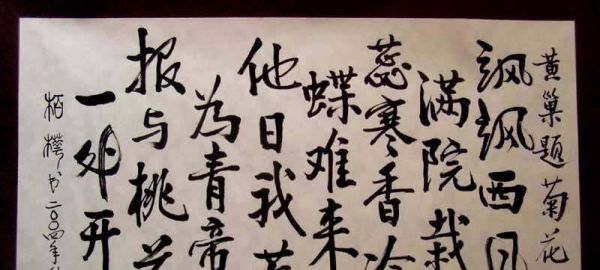 黄巢题菊花
飒飒西风
满院栽
蕊寒香冷
蝶难来
他日我若
為青帝
报与桃花
一处开
书二〇〇四年